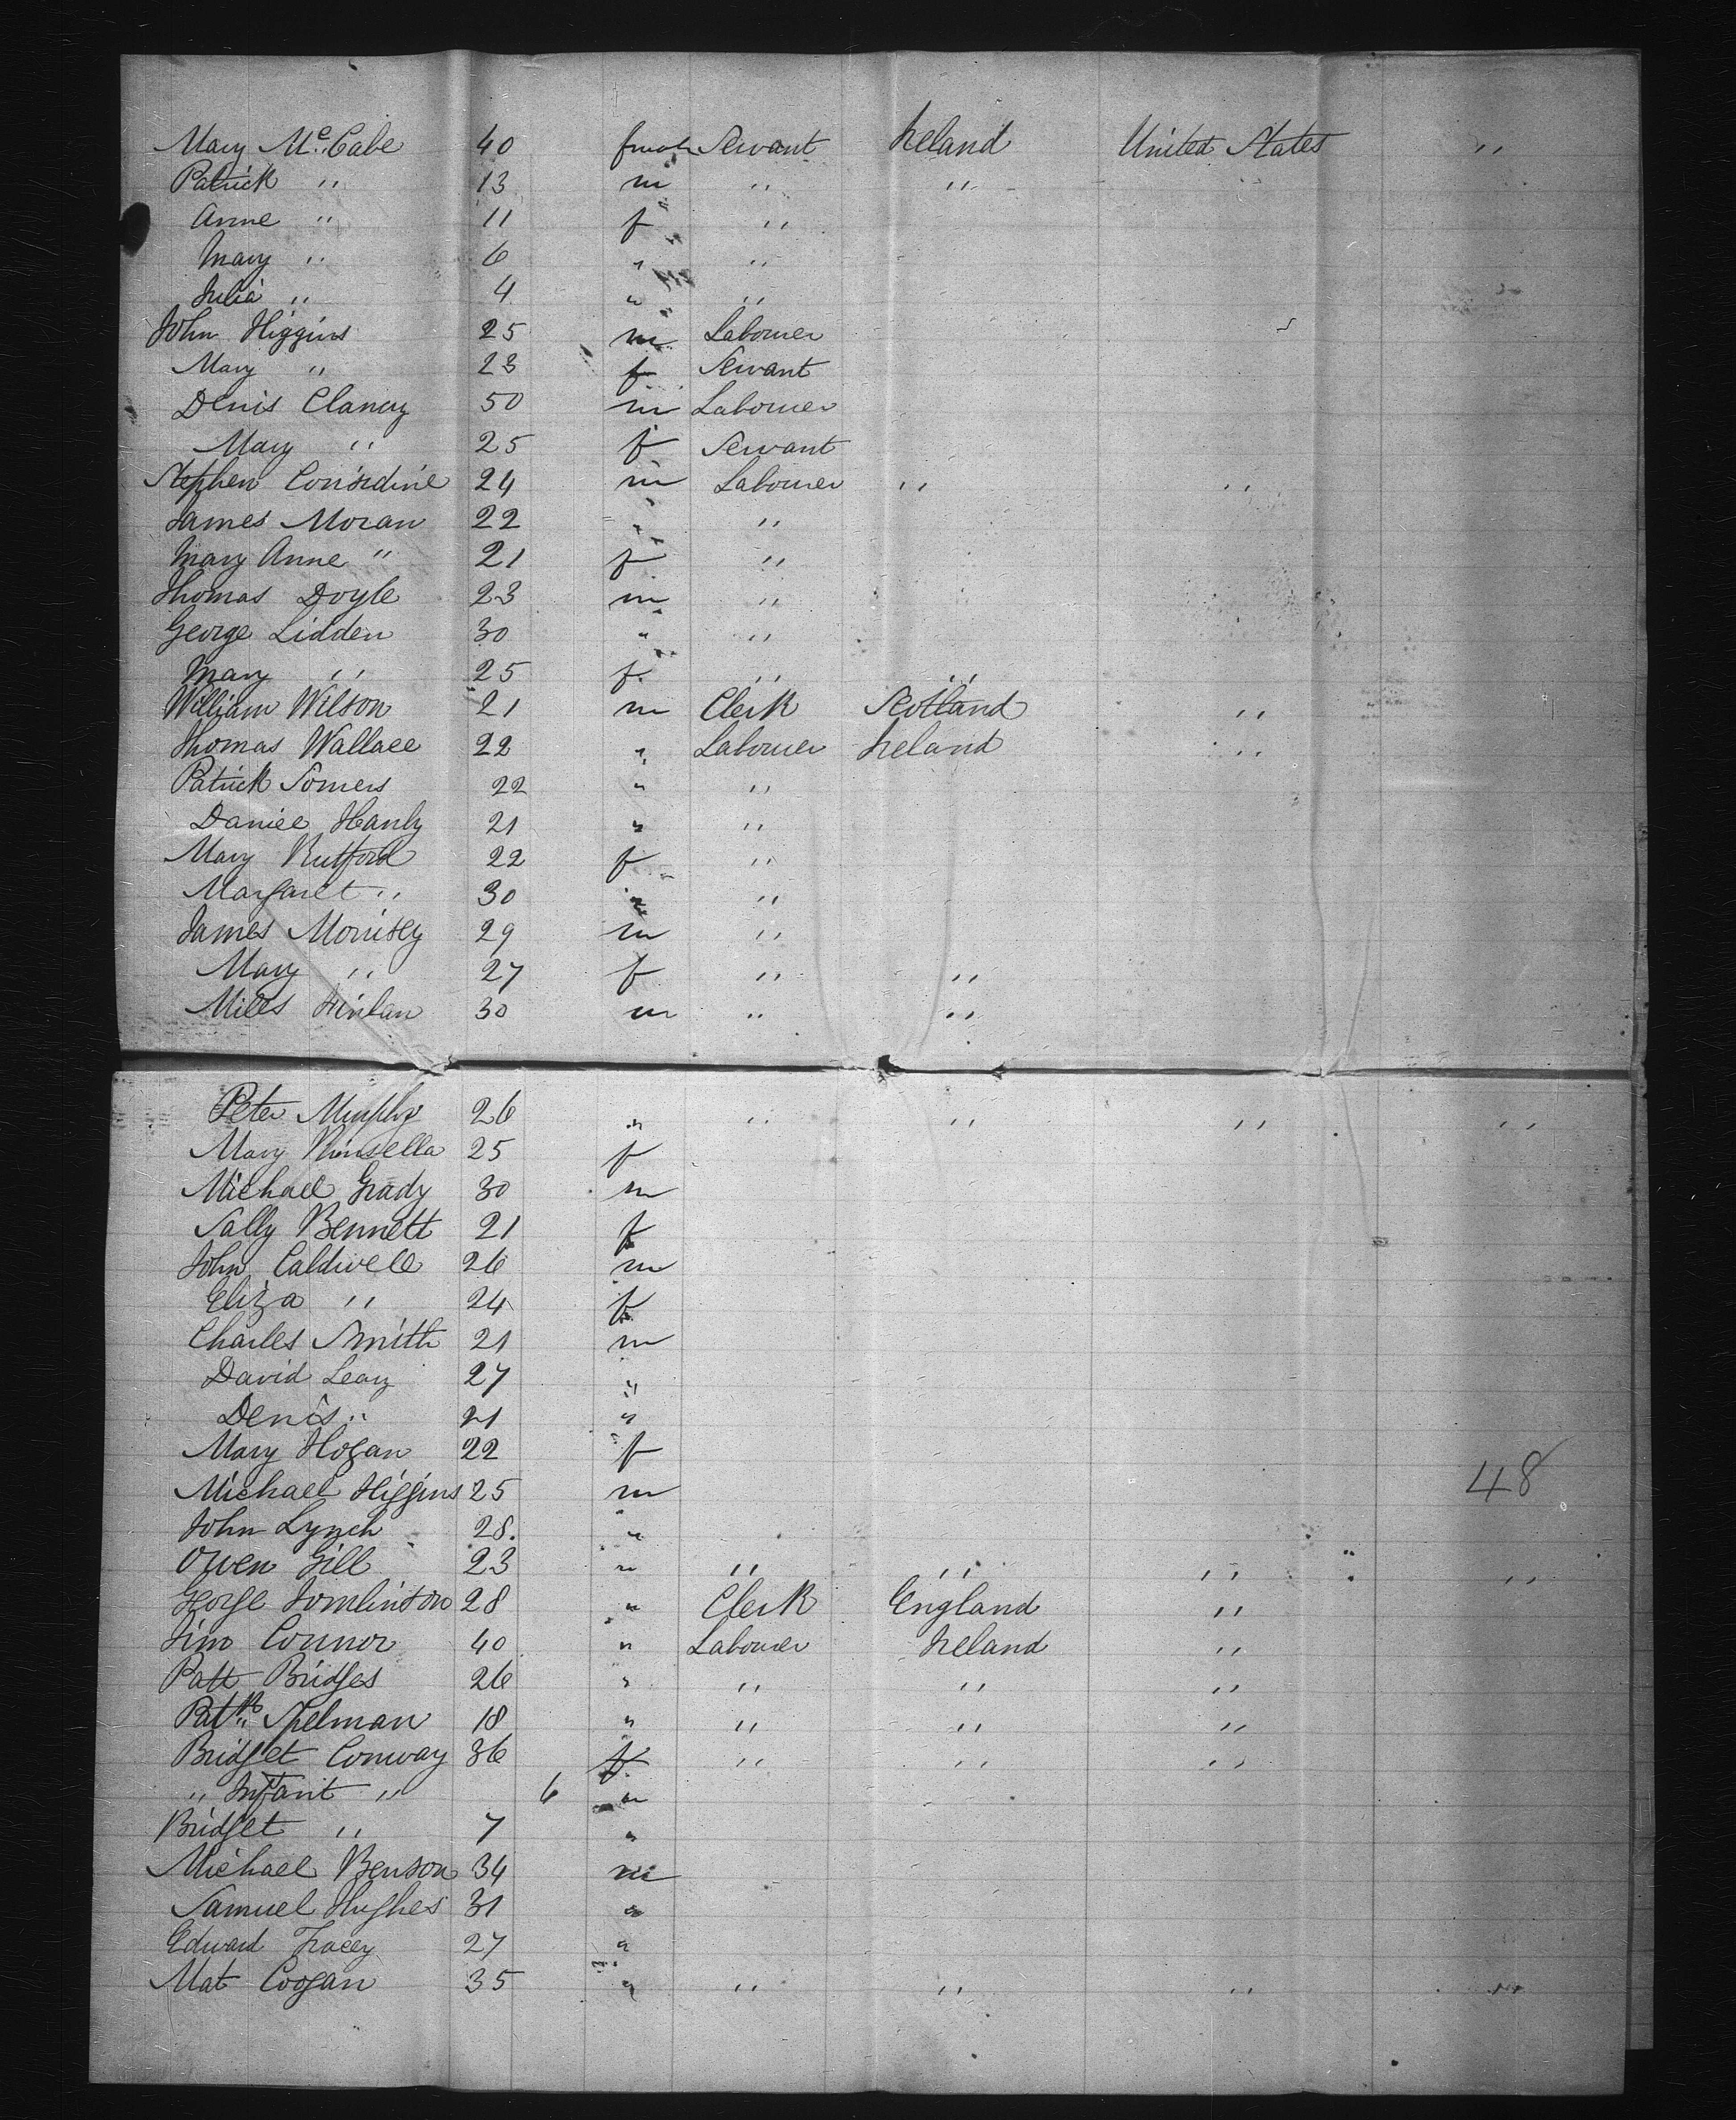 Mary McCabe 40 female Servant Ireland United States "
Patrick " 13 m " "
Anne " 11 f "
Mary " 6 " "
Julia " 4 " "
John Higgins 25 m Labourer
Mary " 23 f Servant
Denis Clancy 50 m Labourer
Mary " 25 f Servant
Stephen Considine 24 m Labourer " "
James Moran 22 " "
Mary Anne " 21 f "
Thomas Doyle 23 m "
George Lidden 30 " "
Mary " 25 f " "
William Wilson 21 m Clerk Scotland "
Thomas Wallace 22 " Labourer Ireland "
Patrick Somers 22 " "
Daniel Hanly 21 " "
Mary Rutford 22 f "
Margaret " 30 " "
James Morrisey 29 m "
Mary " 27 f " "
Miles 30 m " "
Peter Murphy 26 " " " " "
Mary Kinsella 25 f
Michael Grady 30 m
Sally Bennett 21 f
John Caldwell 26 m
Eliza " 24 f
Charles Smith 21 m
David Leary 27 "
Denis " 21 "
Mary Hogan 22 f
Michael Higgins 25 m 48
John Lynch 28. "
Owen Gill 23 " " " " "
George Tomlinson 28 " Clerk England "
Jim Connor 40 " Labourer Ireland "
Patt Bridges 26 " " " "
Patk Spelman 18 " " " "
Bridget Conway 36 f " " "
" Infant " 6 "
Bridget " 7 "
Michael Benson 34 m
Samuel Hughes 31 "
Edward Tracey 27 "
Mat Coogan 35 " " " " "